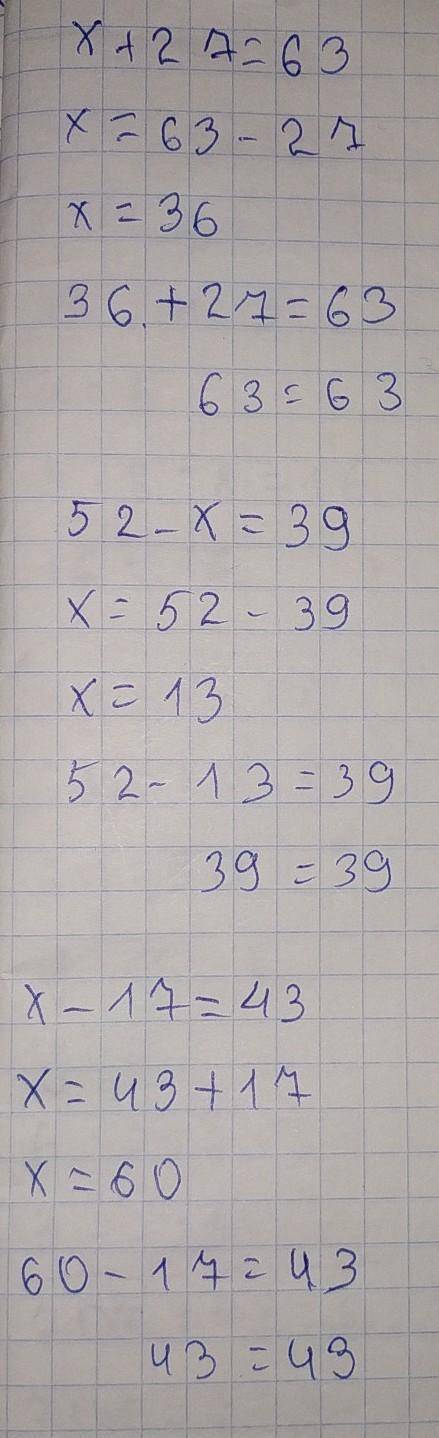 x + 27 = 63
x = 63 - 27
x = 36
36 + 27 = 63
63 = 63
52 - x = 39
x = 52 - 39
x = 13
52 - 13 = 39
39 = 39
x - 17 = 43
x = 43 + 17
x = 60
60 - 17 = 43
43 = 43